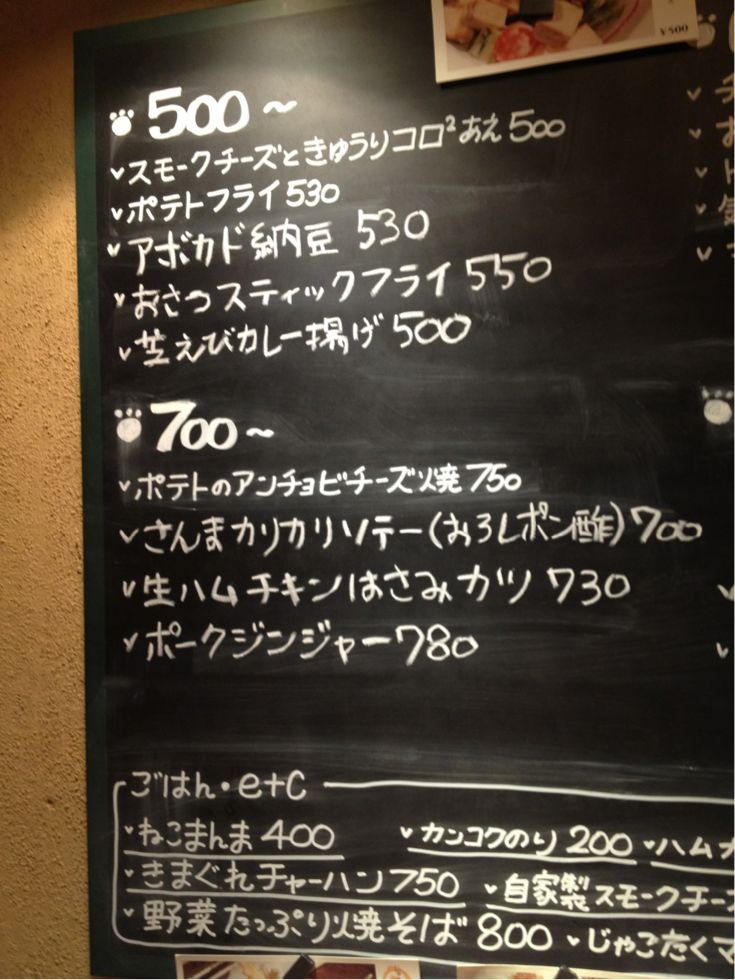 ¥500
500～
スモークチーズときゅうりコロ²あえ500
ポテトフライ530
アボカド納豆 530
おさつスティックフライ550
芝えびカレー揚げ500
700～
ポテトのアンチョビチーズ焼750
さんまカリカリソテー(おろしポン酢)700
生ハムチキンはさみカツ 730
ポークジンジャー780
ごはん・etc
ねこまんま400 カンコクのり200 ハム
きまぐれチャーハン750 自家製スモークチー
野菜たっぷり焼そば 800 じゃこたくマ